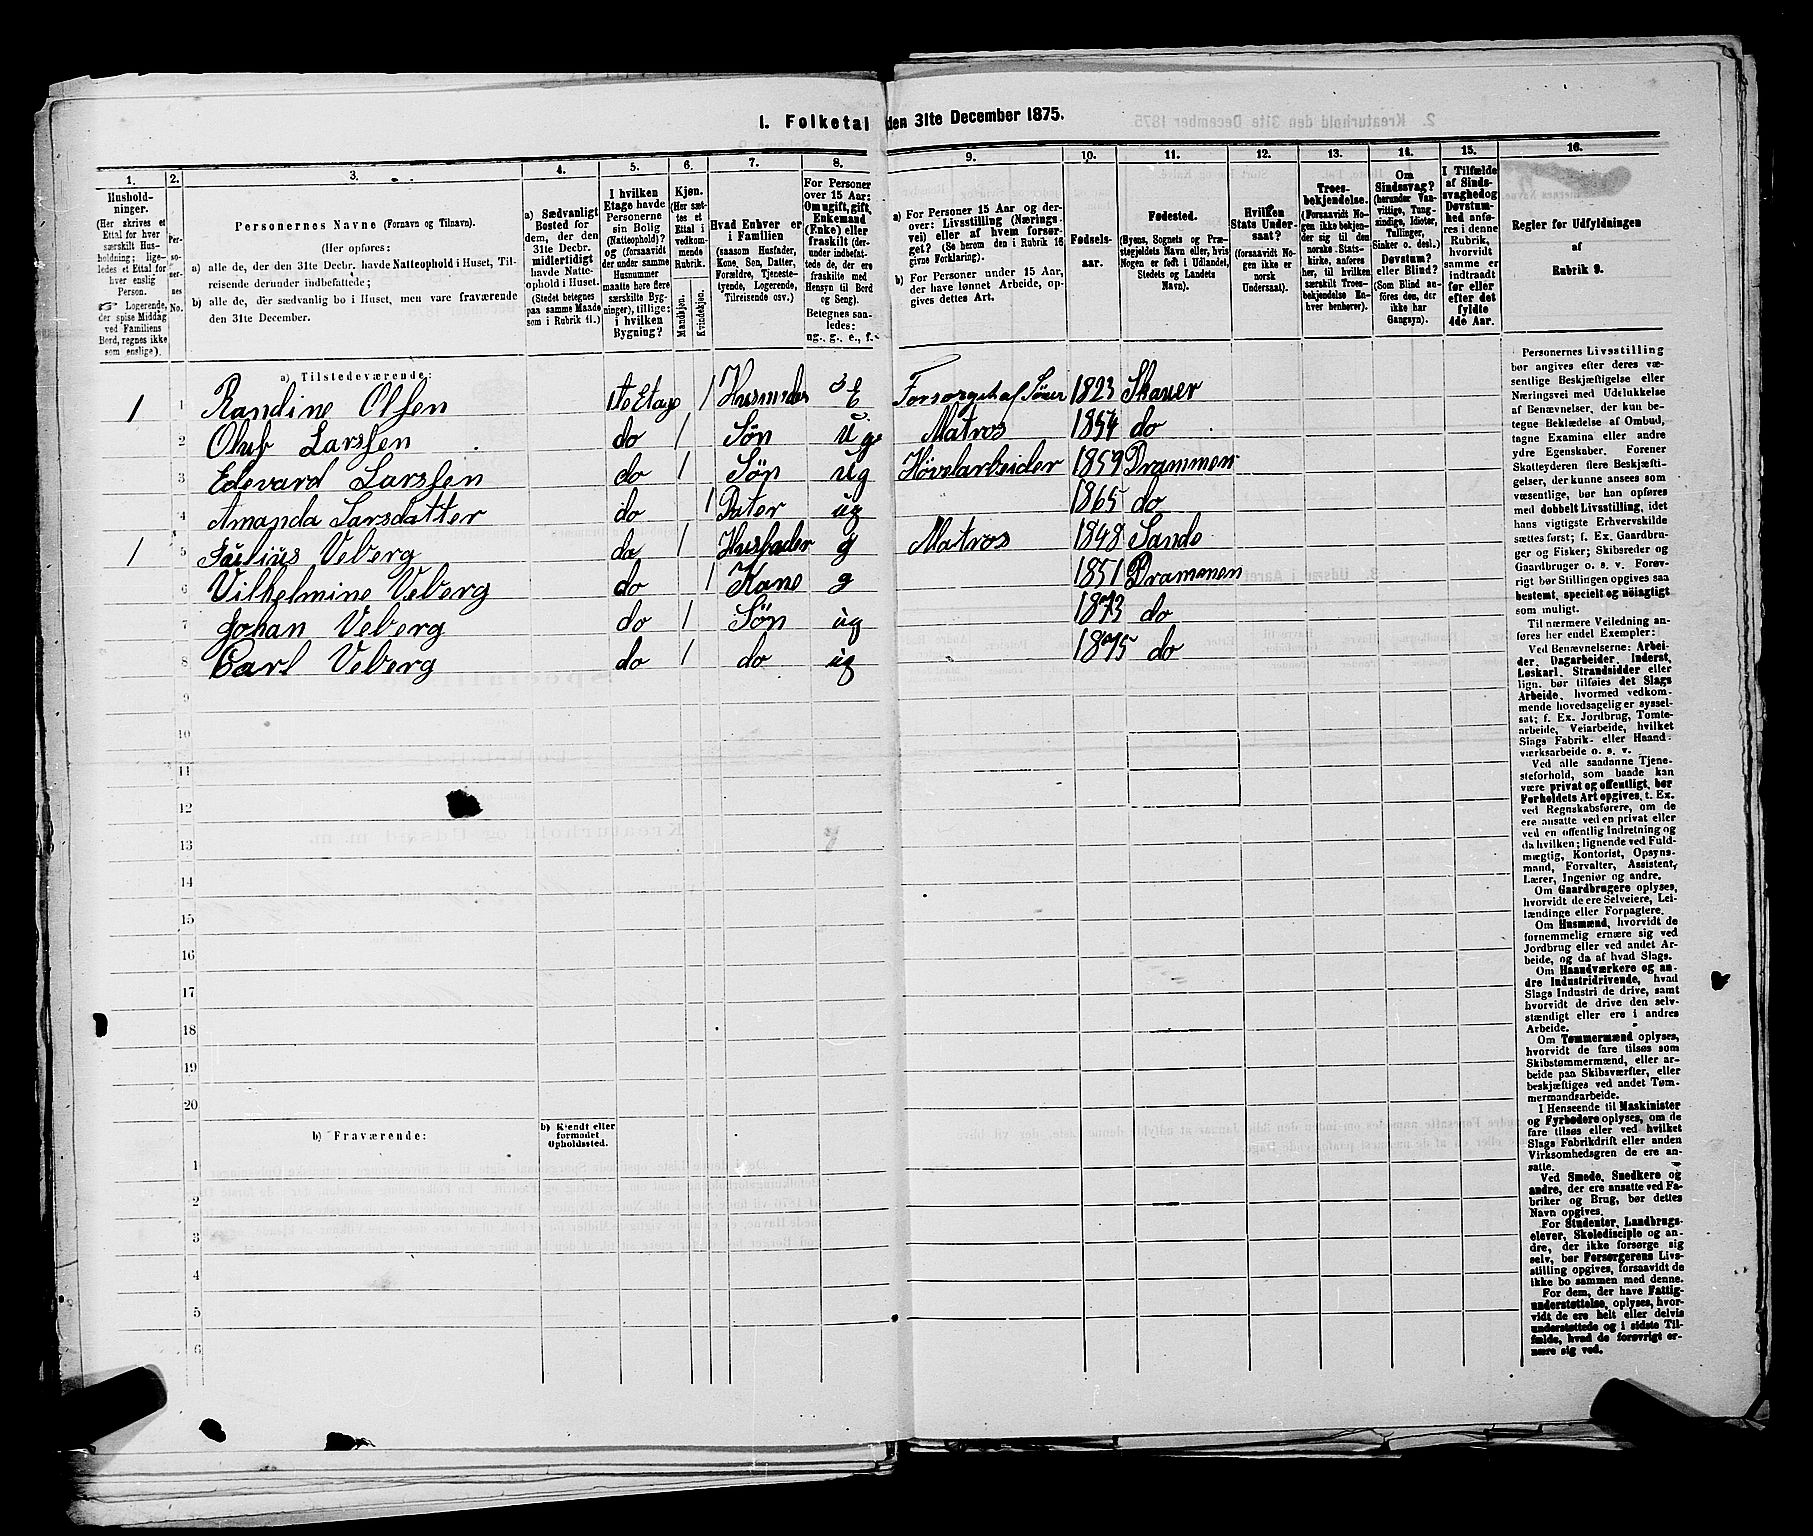 I. Folketal den 31te December 1875.
1. 2. 3. 4. 5. 6. 7. 8. 9. 10. 11. 12. 13. 14. 15. 16.
Husholdninger.
(Her skrives et
Ettal for hver
særskilt Husholdning;
ligeledes et Ettal for
hver enslig
Person.
Logerende,
der spise Middag
ved Familiens
Bord, regnes ikke
som enslige).
Personernes No.
Personernes Navne (Fornavn og Tilnavn).
(Her opføres:
a) alle de, der den 31te Decbr. havde Natteophold i Huset, Tilreisende
derunder indbefattede;
b) alle de, der sædvanlig bo i Huset, men vare fraværende
den 31te December.
a) Sædvanligt
Bosted for
dem, der den
31te Decbr.
midlertidigt
havde Natteophold
i Huset.
(Stedet betegnes
paa samme Maade
som i Rubrik 11.)
I hvilken
Etage havde
Personerne
sin Bolig
(Natteophold)?
og (forsaavidt
der under samme
Husnummer
maatte høre flere
særskilte Bygninger),
tillige:
i hvilken
Bygning?
Kjøn.
(Her sættes
et
Ettal i
vedkommende
Rubrik.
Mandkjøn.
Kvindekjøn.
Hvad Enhver er
i Familien
(saasom Husfader,
Kone, Søn, Datter,
Forældre, Tjenestetyende,
Logerende,
Tilreisende osv.)
For Personer
over 15 Aar:
Om ugift, gift,
Enkemand
(Enke) eller
fraskilt (derunder
indbefattede
de, der ere
fraskilte med
Hensyn til Bord
og Seng).
Betegnes saaledes:
ug., g., e., f.
a) For Personer 15 Aar og derover:
Livsstilling (Næringsvei)
eller af hvem forsørget?
(Se herom den i Rubrik 16
givne Forklaring).
b) For Personer under 15 Aar,
der have lønnet Arbeide, opgives
dettes Art.
Fødselsaar.
Fødested.
(Byens, Sognets og Præstegjeldets
Navn eller, hvis
Nogen er født i Udlandet,
Stedets og Landets
Navn).
Hvilken
Stats Undersaat?
(forsaavidt Nogen
ikke er
norsk
Undersaat).
Troesbekjendelse.
(Forsaavidt Nogen
ikke bekjender
sig til den
norske Statskirke,
anføres
her, til hvilken
særskilt Troesbekjendelse
Enhver
henhører).
Om
Sindssvag?
(herunder Vanvittige,
Tungsindige,
Idioter,
Tullinger,
Sinker o. desl.)
Døvstum?
eller Blind?
(Som Blind anføres
den, der
ikke har
Gangsyn).
I Tilfælde
af Sindssvaghed og
Døvstumhed
anføres
i denne
Rubrik,
hvorvidt
samme er
indtraadt
før eller
efter det
fyldte
4de Aar.
Regler for Udfyldningen
af
Rubrik 9.
a) Tilstedeværende:
1 1 Randine Olsen 1te Etage 1 Husmoder E Forsørget af Søner 1823 Skauer
2 Oluf Larssen do 1 Søn ug Matros 1854 do
3 Edevard Larssen do 1 Søn ug Høvelarbeider 1859 Drammen
4 Amanda Larsdatter do 1 Dater ug 1865 do
1 5 Julius Veberg do 1 Husfader g Matros 1848 Sande
6 Vilhelmine Veberg do 1 Kone g 1851 Drammen
7 Johan Veberg do 1 Søn ug 1873 do
8 Carl Veberg do 1 do ug 1875 do
9
10
11
12
13
14
15
16
17
18
19
20
b) Fraværende:
b) Kjendt eller
formodet
Opholdssted.
1
2
3
4
5
6
Personernes Livsstilling
bør angives efter deres væsentlige
Beskjæftigelse eller
Næringsvei med Udelukkelse
af Benævnelser, der kun betegne
Beklædelse af Ombud,
tagne Examina eller andre
ydre Egenskaber. Forener
Skatteyderen flere Beskjæftigelser,
der kunne ansees som
væsentlige, bør han opføres
med dobbelt Livsstilling, idet
hans vigtigste Erhvervskilde
sættes først; f. Ex. Gaardbruger
og Fisker; Skibsreder og
Gaardbruger o. s. v. Forøvrigt
bør Stillingen opgives saa
bestemt, specielt og nøiagtigt
som muligt.
Til nærmere Veiledning anføres
her endel Exempler:
Ved Benævnelserne: Arbeider,
Dagarbeider, Inderst,
Løskarl, Strandsidder eller
lign. bør tilføies det Slags
Arbeide, hvormed vedkommende
hovedsagelig er sysselsat;
f. Ex. Jordbrug, Tomtearbeide,
Veiarbeide, hvilket
Slags Fabrik- eller Haandværksarbeide
o. s. v.
Ved alle saadanne Tjenesteforhold,
som baade kan
være privat og offentligt, bør
Forholdets Art opgives, t. Ex.
ved Regnskabsførere, om de
ere ansatte ved en privat eller
ved en offentlig Indretning og
da hvilken; lignende ved Fuldmægtig,
Kontorist, Opsynsmand,
Forvalter, Assistent,
Lærer, Ingeniør og andre.
Om Gaardbrugere oplyses,
hvorvidt de ere Selveiere, Leilændinge
eller Forpagtere.
Om Husmænd, hvorvidt de
fornemmelig ernære sig ved
Jordbrug eller ved andet Arbeide,
og da af hvad Slags.
Om Haandværkere og andre
Industridrivende, hvad
Slags Industri de drive, samt
hvorvidt de drive den selvstændigt
eller ere i andres
Arbeide.
Om Tømmermænd oplyses,
hvorvidt de fare tilsøs som
Skibstømmermænd, eller arbeide
paa Skibsværfter, eller
beskjæftiges ved andet Tømmermandsarbeide.
I Henseende til Maskinister
og Fyrbødere oplyses, om de
fare tilsøs eller ved hvilket
Slags Fabrikdrift eller anden
Virksomhedsgren de ere ansatte.
Ved Smede, Snedkere og
andre, der ere ansatte ved Fabriker
og Brug, bør dettes
Navn opgives.
For Studenter, Landbrugselever,
Skoledisciple og andre,
der ikke forsørge sig
selv, bør Forsørgerens Livsstilling
opgives, forsaavidt de
ikke bo sammen med denne.
For dem, der have Fattigunderstøttelse,
oplyses, hvorvidt
de ere helt eller delvis
understøttede og i sidste Tilfælde,
hvad de forøvrigt ernære
sig ved.